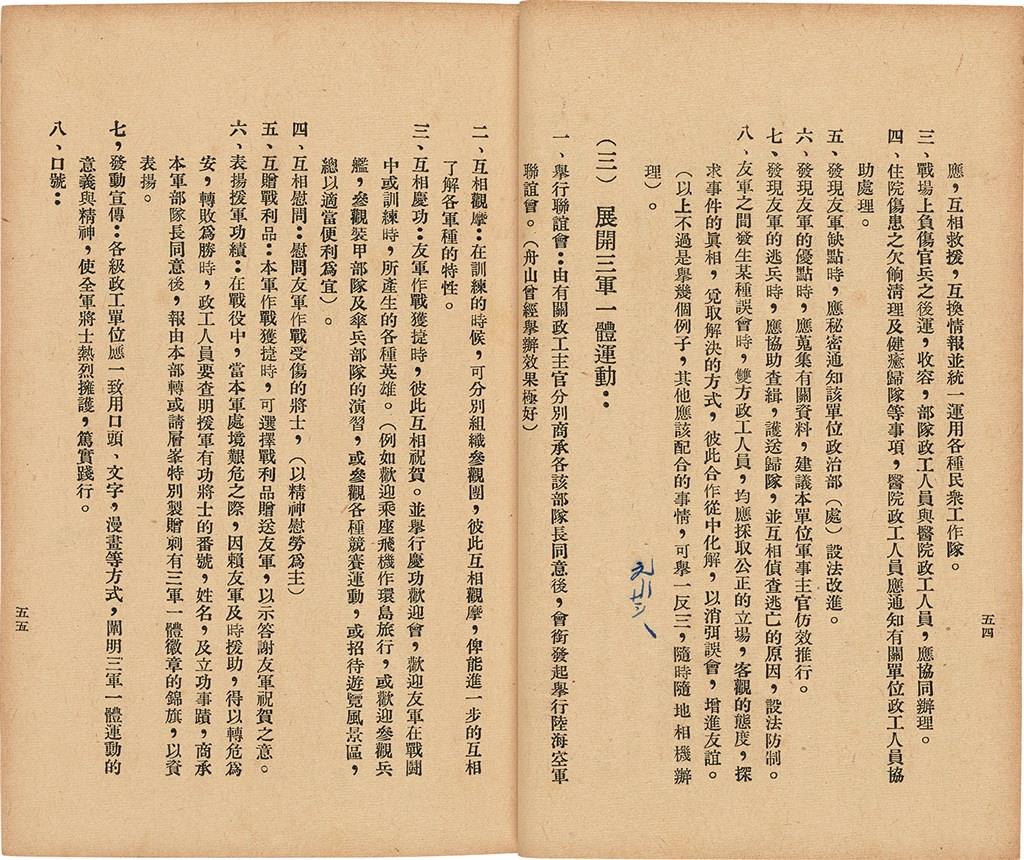 應，互相救援，互換情報並統一運用各種民衆工作隊。
三、戰場上負傷官兵之後運，收容，部隊政工人員與醫院政工人員，應協同辦理。
四、住院傷患之欠餉清理及健癒歸隊等事項，醫院政工人員應通知有關單位政工人員協
助處理。
五、發現友軍缺點時，應秘密通知該單位政治部（處）設法改進。
六、發現友軍的優點時，應蒐集有關資料，建議本單位軍事主官仿效推行。
七、發現友軍的逃兵時，應協助查緝，護送歸隊，並互相偵查逃亡的原因，設法防制。
八、友軍之間發生某種誤會時，雙方政工人員，均應採取公正的立場，客觀的態度，探
求事件的眞相，覓取解決的方式，彼此合作從中化解，以消弭誤會，增進友誼。
（以上不過是舉幾個例子，其他應該配合的事情，可舉一反三，隨時隨地相機辦
理）。
（三）　展開三軍一體運動：
一、舉行聯誼會：由有關政工主官分別商承各該部隊長同意後，會銜發起舉行陸海空軍
聯誼會。（舟山曾經舉辦效果極好）
五四
二、互相觀摩：在訓練的時候，可分別組織參觀團，彼此互相觀摩，俾能進一步的互相
了解各軍種的特性。
三、互相慶功：友軍作戰獲捷時，彼此互相祝賀。並舉行慶功歡迎會，歡迎友軍在戰鬪
中或訓練時，所產生的各種英雄。（例如歡迎乘座飛機作環島旅行，或歡迎參觀兵
艦，參觀裝甲部隊及傘兵部隊的演習，或參觀各種競賽運動，或招待遊覽風景區，
總以適當便利爲宜）。
四、互相慰問：慰問友軍作戰受傷的將士，（以精神慰勞爲主）
五、互贈戰利品：本軍作戰獲捷時，可選擇戰利品贈送友軍，以示答謝友軍祝賀之意。
六、表揚援軍功績：在戰役中，當本軍處境艱危之際，因賴友軍及時援助，得以轉危爲
安，轉敗爲勝時，政工人員要查明援軍有功將士的番號，姓名，及立功事蹟，商承
本軍部隊長同意後，報由本部轉或請層峯特別製贈刺有三軍一體徽章的錦旗，以資
表揚。
七，發動宣傳：各級政工單位應一致用口頭、文字，漫畫等方式，闡明三軍一體運動的
意義與精神，使全軍將士熱烈擁護，篤實踐行。
八、口號：
五五